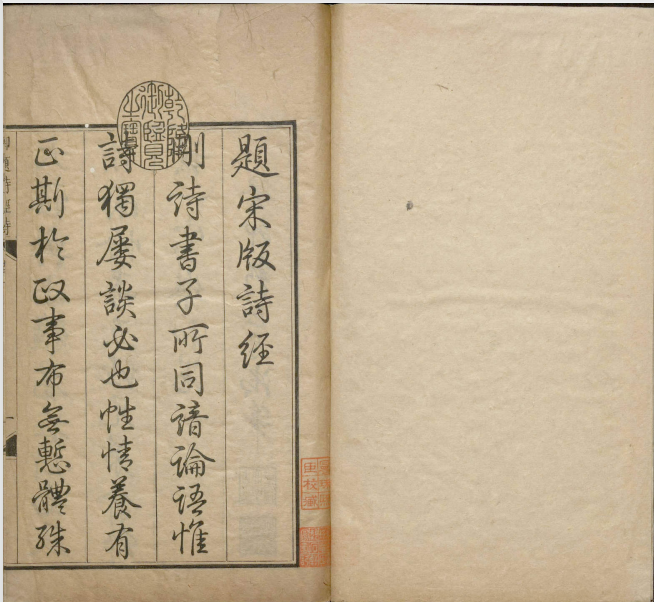 題宋版詩經
刪詩書子所同諳論語惟
詩獨屢談必也性情養有
正斯於政事布無慙體殊
乾隆御覽之寶